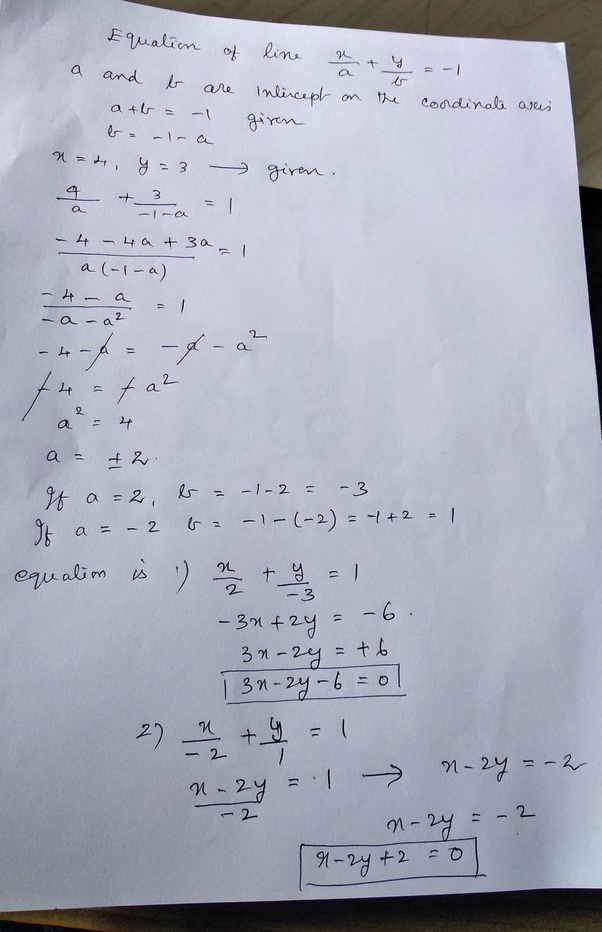 Equation of line x/a + y/b = -1
a and b are intercept on the coordinate axes
a+b = -1 given
b = -1-a
x = 4, y = 3 → given.
4/a + 3/(-1-a) = 1
(-4 - 4a + 3a)/(a(-1-a)) = 1
(-4 - a)/(-a - a²) = 1
-4 - a = -a - a²
-4 = -a²
a² = 4
a = ±2.
If a = 2, b = -1-2 = -3
If a = -2 b = -1-(-2) = -1+2 = 1
equation is 1) x/2 + y/-3 = 1
-3x+2y = -6.
3x-2y = +6
3x-2y-6 = 0
2) x/-2 + y/1 = 1
(x-2y)/-2 = 1 → x-2y = -2
x-2y = -2
x-2y+2 = 0